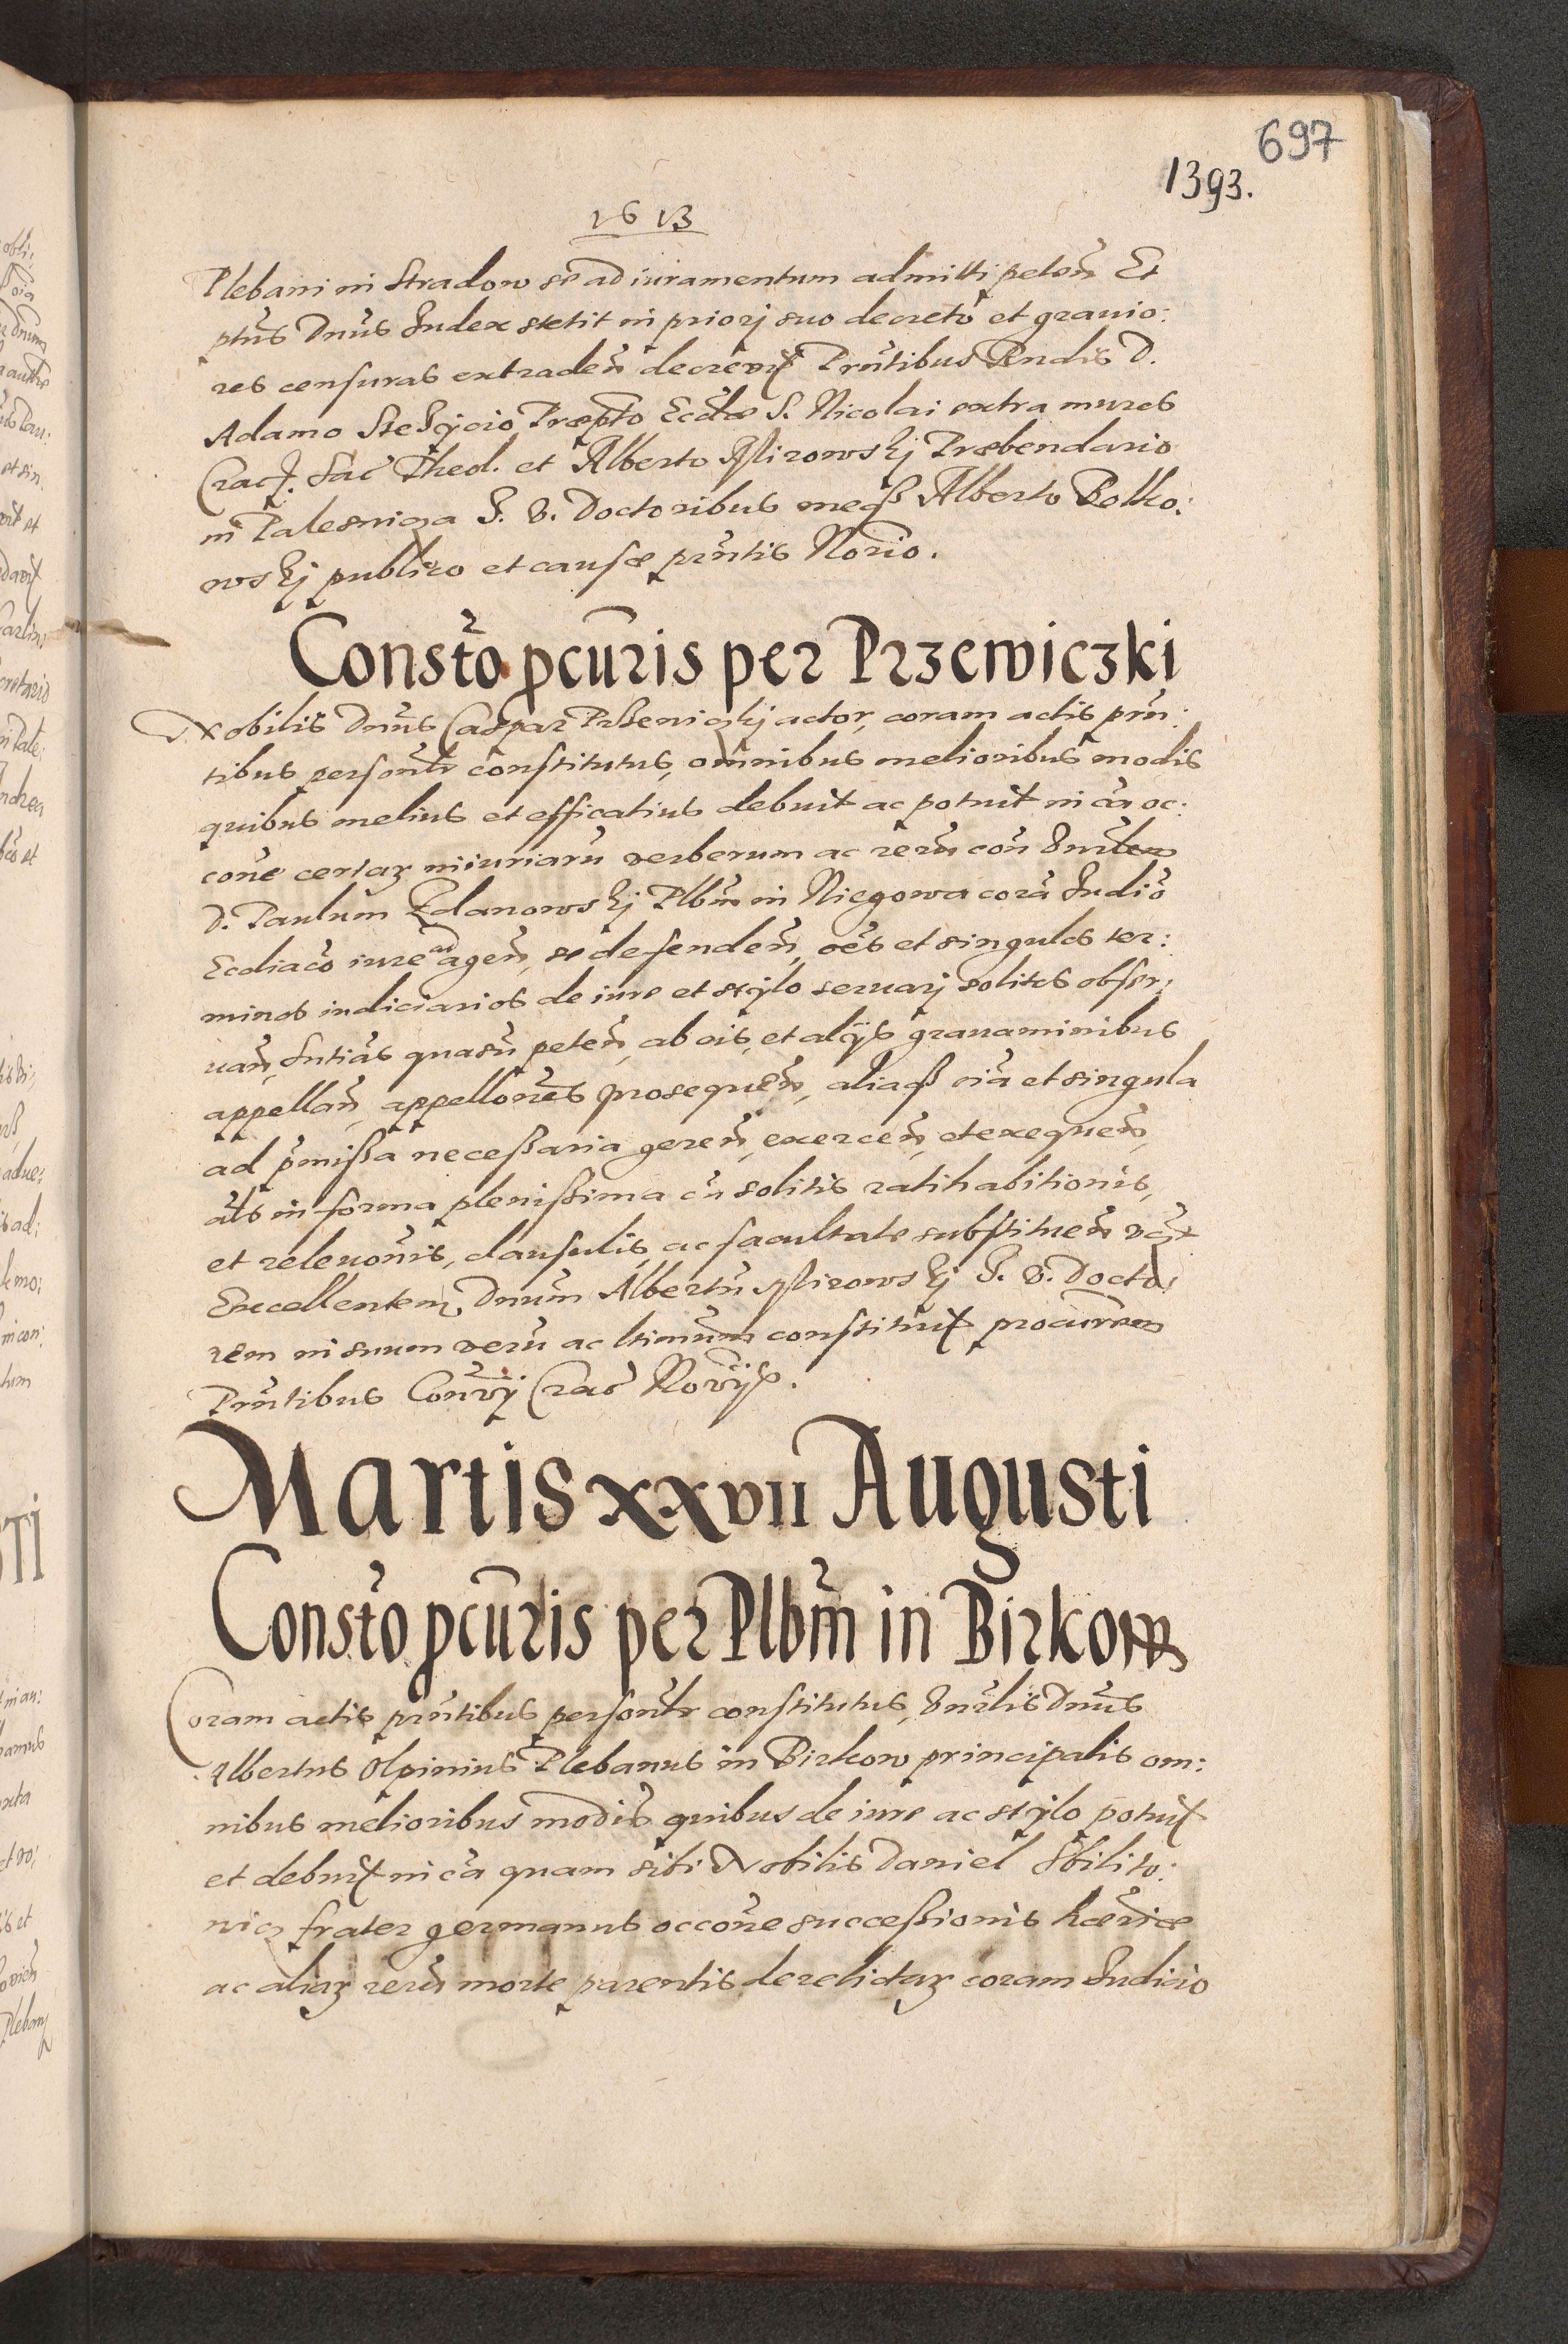 697
1393.
1613
Plebani in Stradow se ad iuramentum admitti peteñ Et
ptus Dnus Iudex stetit in priorj suo decreto et grauio:
res censuras extradeñ decrevit Prñtibus Rndis D.
Adamo Stekycio Præpto Eccłæ S. Nicolai extra muros
Crac. Sac Theol. et Alberto Mirowskj Præbendario
in Palesnica I. V. Doctoribus meqȝ Alberto Bolko:
wskj publico et causæ prñtis Norio.
Constõ pcuris per Przewiczki
Nobilis Dnus Caspar Przewiczkj actor, coram actis prñ:
tibus personłr constitutus, omnibus melioribus modis
quibus melius et efficatius debuit ac potuit in cã oc:
cone certaȝ iniuriarũ verberum ac rerũ con Vnrłem
D. Paulum Zdanowskj Plbm in Niegowa corã Iudiõ
Ecoliacõ iure ad agen, se defendeñ, oẽs et singulos ter:
minos iudiciarios de iure et stylo seruarj solitos obser:
uañ, Sntias quasũ peteñ, ab eis, et alijs grauaminibus
appellañ, appellones prosequeñ, aliaqȝ oĩa et singula
ad pmissa necessaria gereñ, exerceñ, et exequeñ,
als in forma plenissima cũ solitis ratihabitionis,
et releuonis, clausulis, ac facultate substitueñ
Excellentem Dnum Albertũ Mirowskj I. V. Docto:
rem in suum verũ ac ltimum constituit procurem
Prñtibus Conrvj Crac Norijs.
Martis XXVII Augusti
Constõ pcuris per Plbm in Birkow
Coram actis prñtibus personłr constitutus, Vnrlis Dnus
Albertus Olpinius Plebanus in Birkow principalis om:
nibus melioribus modis quibus de iure ac stylo potuit
et debuit in cã quam sibi Nobilis Daniel Sbilito:
wicz frater germanus occone successionis
ac aliaȝ rerũ morte parentis derelictaȝ coram Iudicio